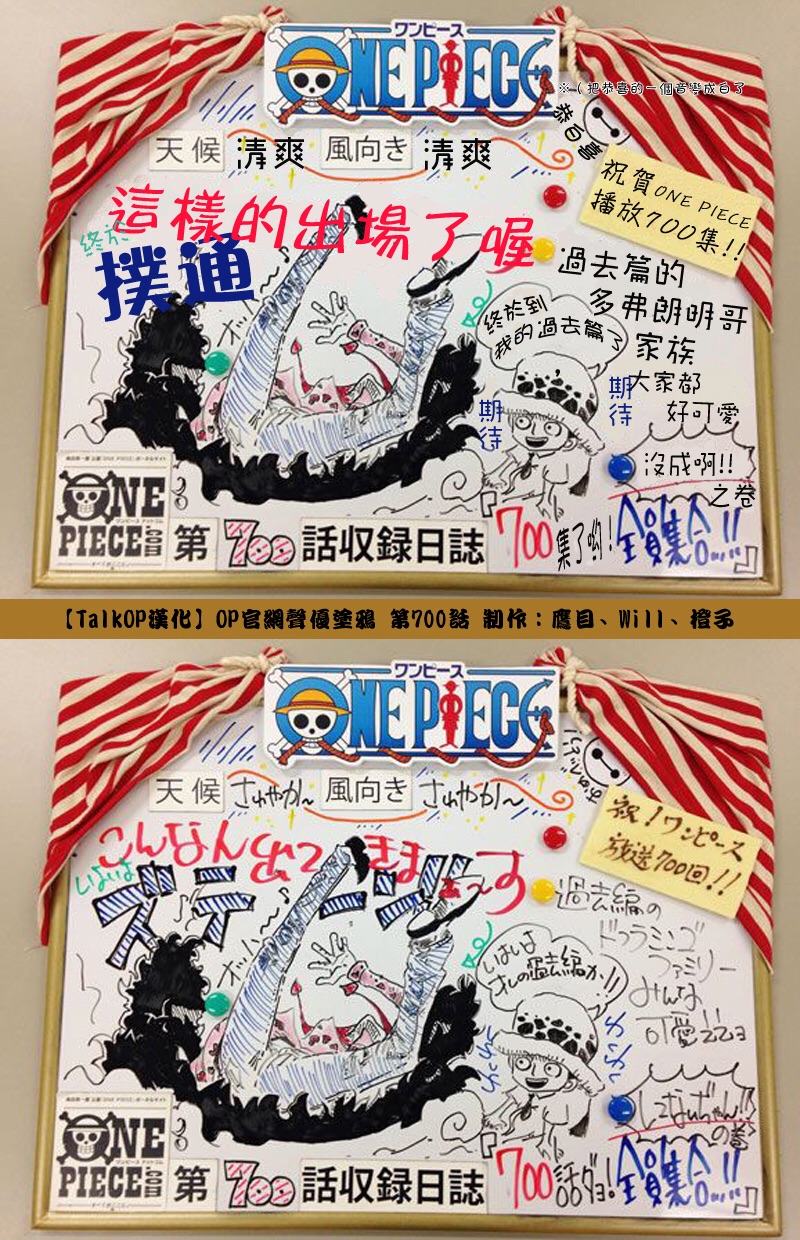 ワンピース
ONE PIECE
※（把恭喜的一個音變成白了
恭白喜
天候 清爽 風向き 清爽
祝賀ONE PIECE
播放700集!!
這樣的出場了喔
終於
撲通
過去篇的
多弗朗明哥
家族
大家都
好可愛
終於到
我的過去篇了
期待
期待
沒成啊!!
之卷
ONE
PIECE.com
第700話収録日誌
『700集了喲！全員集合!!』
【TalkOP漢化】OP官網聲優塗鴉 第700話 制作：鷹目、Will、橙子
ワンピース
ONE PIECE
天候 さわやか〜 風向き さわやか〜
祝！ワンピース
放送700回!!
こんなん出てきまぁ〜す
いよいよ
ズデーン!!
過去編の
ドフラミンゴ
ファミリー
みんな
可愛ェェョ
いよいよ
オレの過去編か!!
の巻
ONE
PIECE.com
第700話収録日誌
『700話ダヨ！全員集合!!』